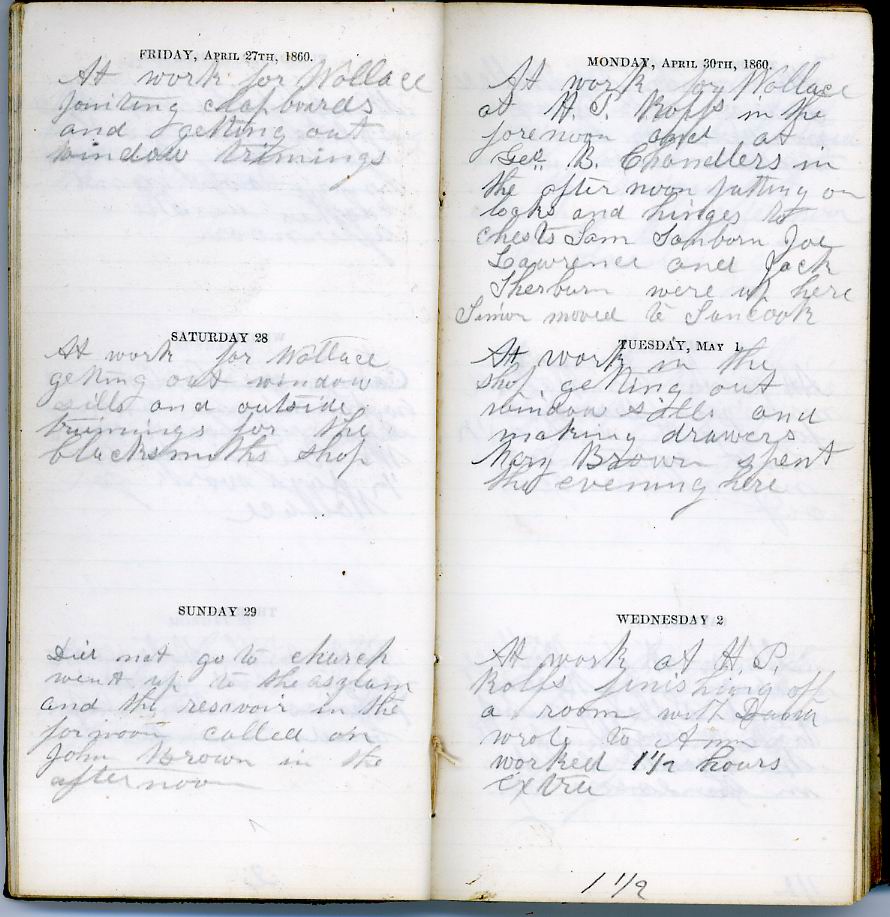 FRIDAY, APRIL 27TH, 1860.
At work for Wallace
Jointing clapboards
and getting out
window trimings
SATURDAY 28
At work for Wallace
getting out window
sills and outside
trimings for the
blacksmiths shop
SUNDAY 29
Did not go to church
went up to the asylam
and the resivoir in the
fornoon called on
John Brown in the
afternoon
MONDAY, APRIL 30TH, 1860.
At work for Wallace
at H. P. Rolfs in the
forenoon and at
Geo. B. Chandlers in
the after noon putting on
locks and hinges to
chests Sam Sanborn Joe
Lawrence and Jack
Sherburn were up here
moved to Suncook
TUESDAY, MAY 1
At work in the
shop getting out
window sills and
making drawers
Brown spent
the evening here
WEDNESDAY 2
At work at H. P.
Rolfs finishing off
a room with
wrote to Ann
worked 1 1/2 hours
extra
1 1/2